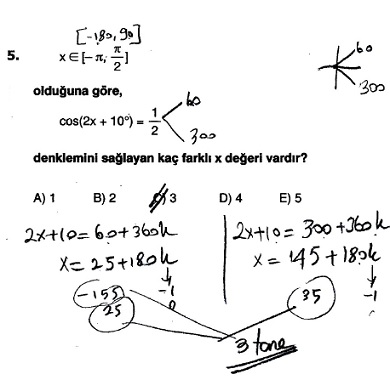 [-180, 90]
5. x∈[-π, π/2]
olduğuna göre,
cos(2x + 10°) = 1/2
60
300
60
300
denklemini sağlayan kaç farklı x değeri vardır?
A) 1 B) 2 C) 3 D) 4 E) 5
2x+10=60+360k
x=25+180k
-1
0
-155
25
2x+10=300+360k
x=145+180k
-1
35
3 tane